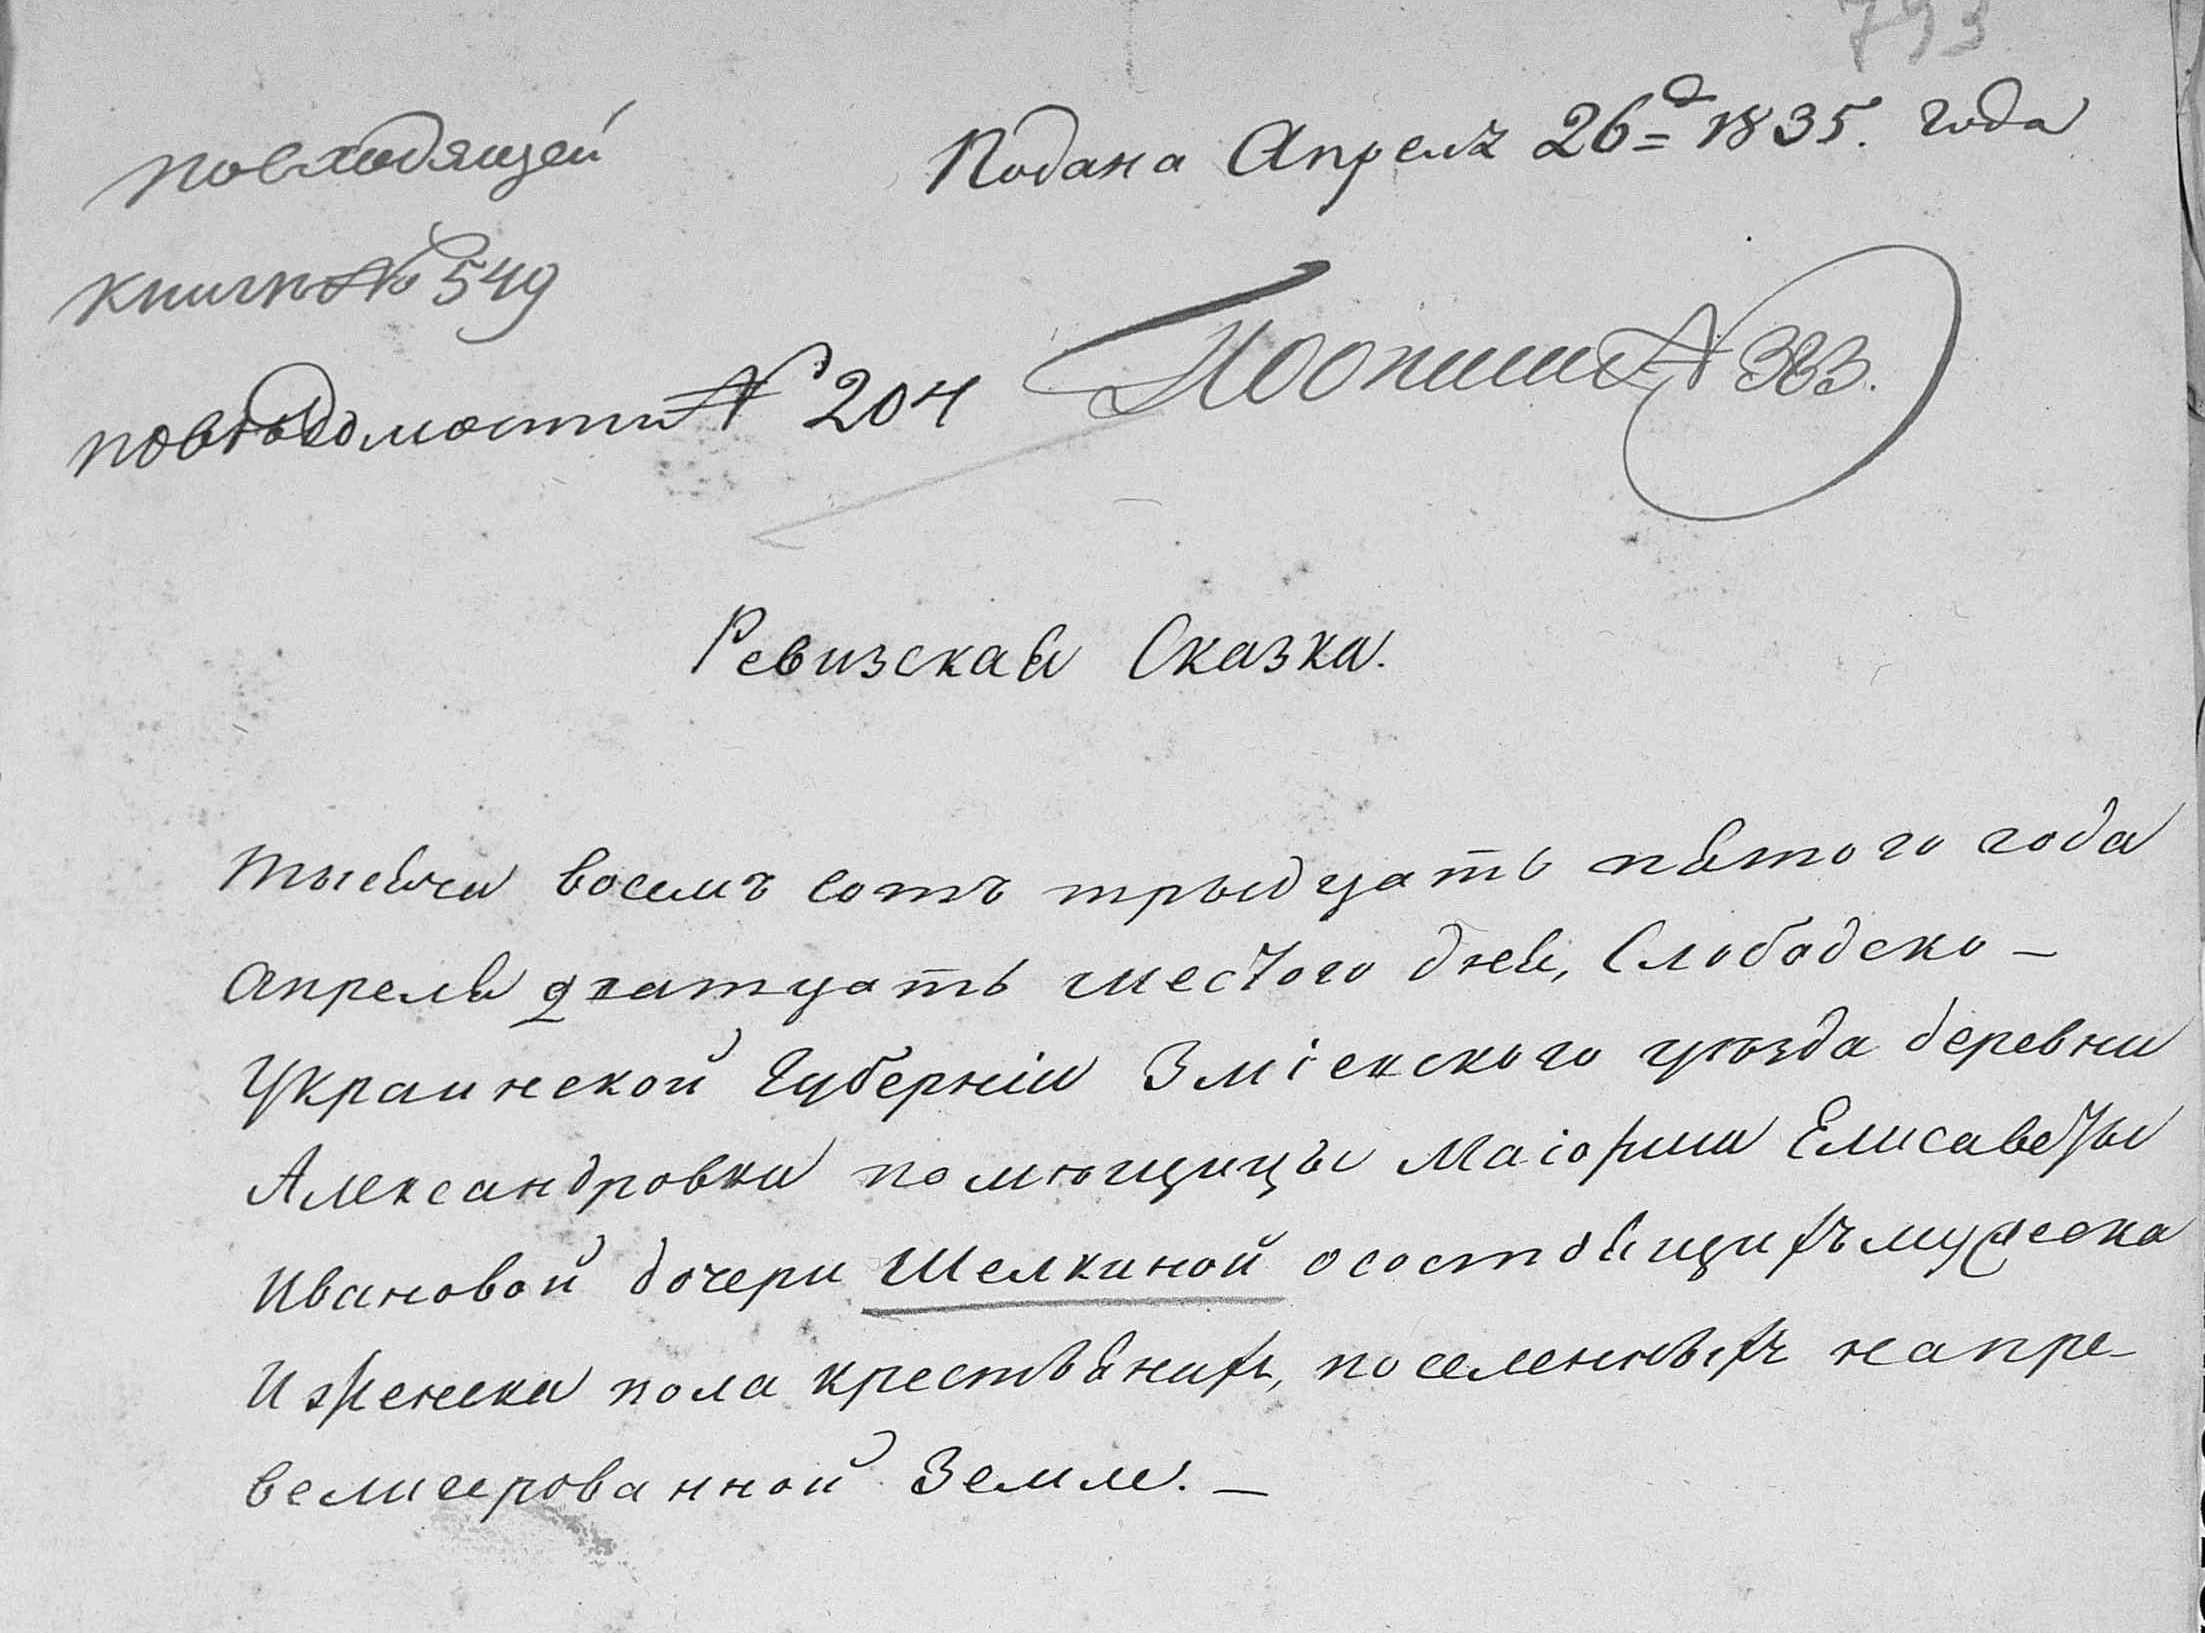 793
Подана Апреля 26=го 1835. года
повходящей
книги № 549
повѣдомости № 204
Поописи № 383.
Ревизская Сказка.
Тысяча восемъ сотъ трыдцать пятого года
Апреля дватцать шестого дня, Слободско-
Украинской Губерніи Зміевского уѣзда деревни
Александровки помѣщицы Маіорши Елисаветы
Ивановой дочери Шелкиной осостоящихъ мужеска
И женска пола крестьянихъ, поселенныхъ напре-
велигированной Земле. –